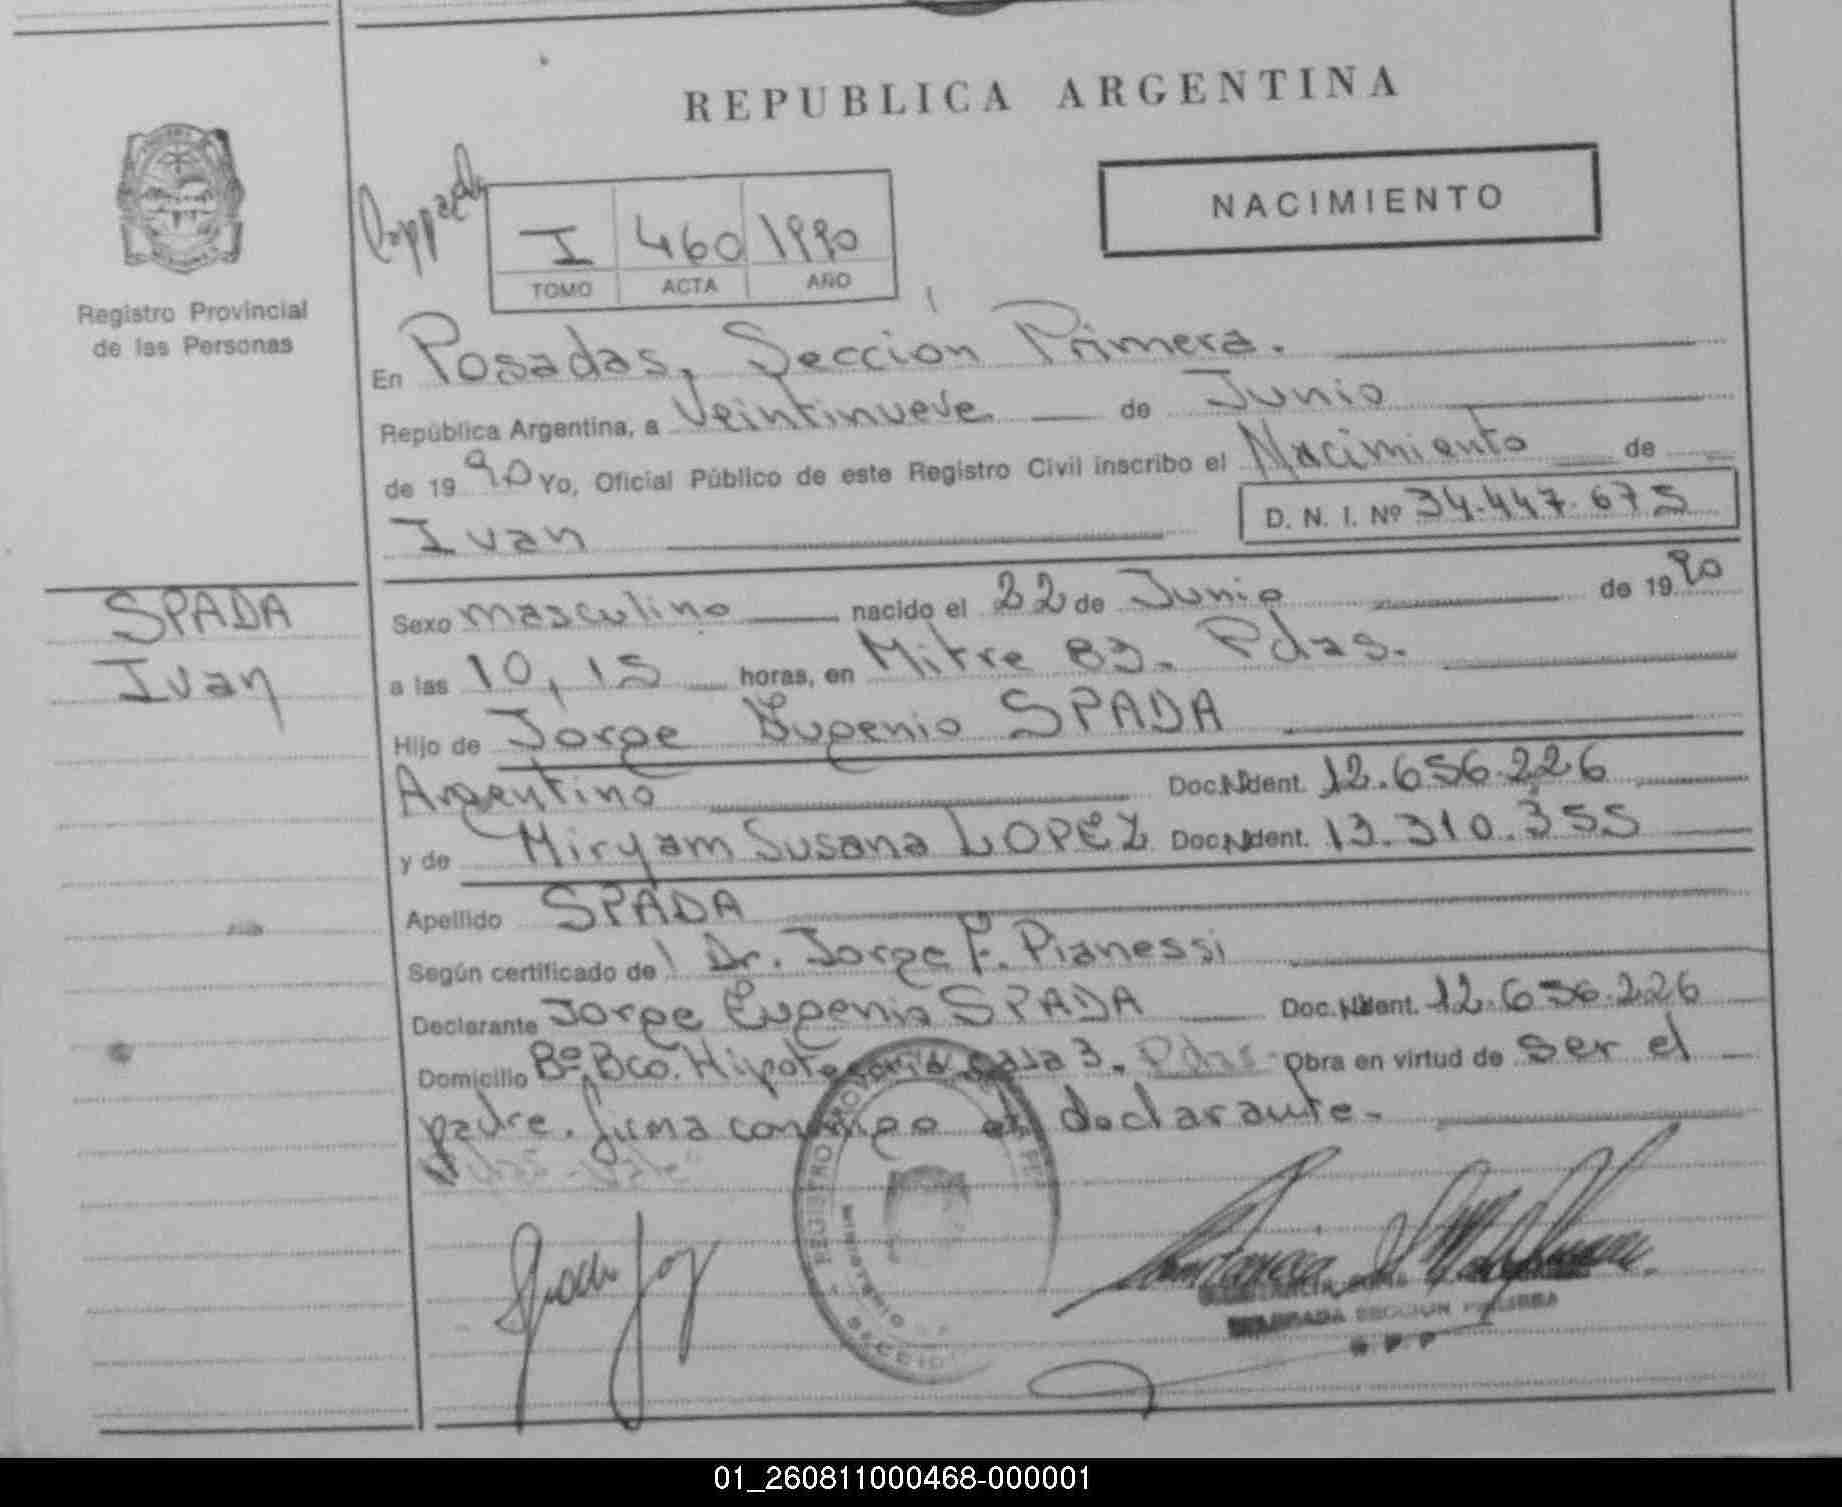 REPUBLICA ARGENTINA
NACIMIENTO
I 460 1990
TOMO ACTA AÑO
Registro Provincial
de las Personas
En Posadas, Sección Primera.
República Argentina, a Veintinueve de Junio
de 1990 Yo, Oficial Público de este Registro Civil inscribo el Nacimiento de
Ivan D. N. I. Nº 34.447.675
SPADA
Ivan
Sexo masculino nacido el 22 de Junio de 1990
a las 10,15 horas, en Mitre 83. Pdas.
Hijo de Jorge Eugenio SPADA
Argentino Doc. Ident. 12.656.226
y de Miryam Susana LOPEZ Doc. Ident. 13.310.355
Apellido SPADA
Según certificado del Dr. Jorge F. Pianessi
Declarante Jorge Eugenio SPADA Doc. Ident. 12.656.226
Domicilio Bº Bco. Hipotecario casa 3. Pdas Obra en virtud de ser el
padre. firma conmigo el declarante.
DELEGADA SECCION PRIMERA
R.P.P
01_260811000468-000001